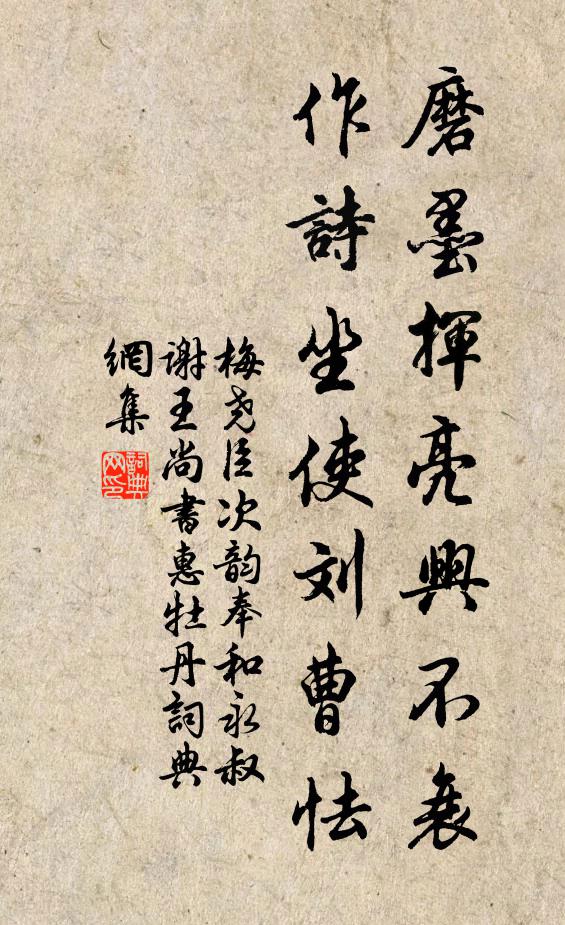 磨墨揮亮興不衰
作詩坐使刘曹怯
梅尧臣次韵奉和永叔
谢王尚書惠牡丹詞典
網集
詞典
网印